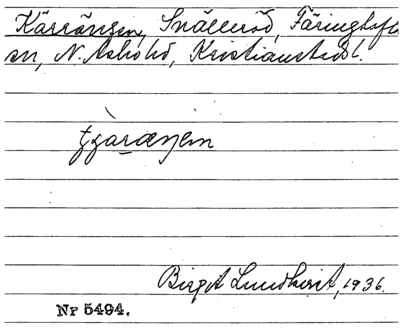 Kärrängen, Snälleröd, Färingtofta
sn, N. Åsbo hd, Kristianst. l.
Birgit Lundkvist, 1936.
Nr 5494.